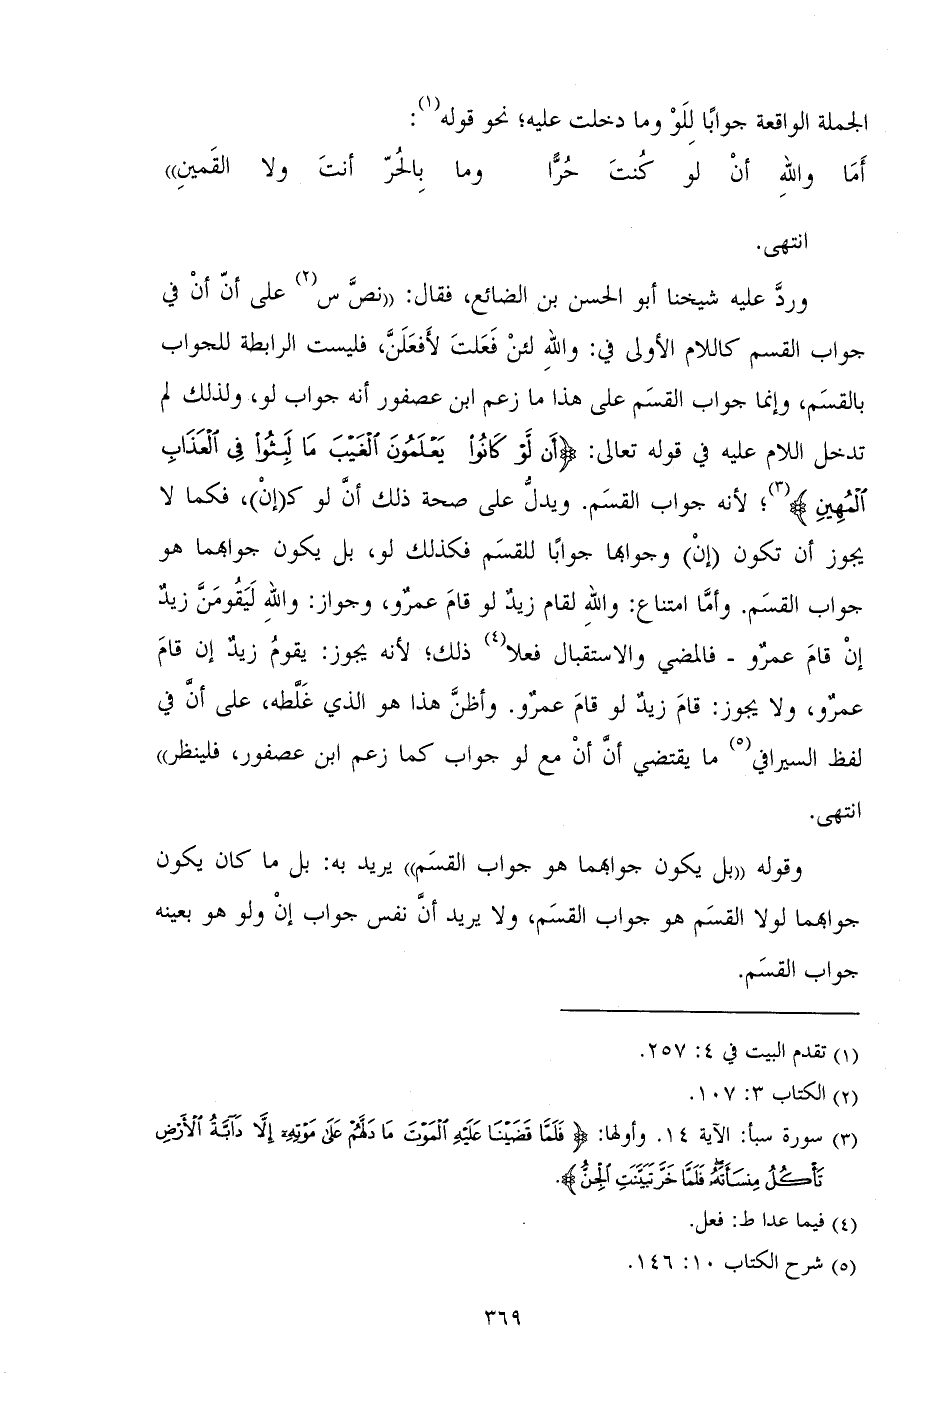 الجملة الواقعة جوابًا لِلَوْ وما دخلت عليه؛ نحو قوله(١):
أَمَا واللهِ أنْ لو كُنتَ حُرًّا وما بِالحُرّ أنتَ ولا القَمينِ))
انتهى.
وردَّ عليه شيخنا أبو الحسن بن الضائع، فقال: ((نصَّ س(٢) على أنّ أنْ في
جواب القسم كاللام الأولى في: واللهِ لئنْ فَعَلتَ لأَفعَلَنَّ، فليست الرابطة للجواب
بالقسَم، وإنما جواب القسَم على هذا ما زعم ابن عصفور أنه جواب لو، ولذلك لم
تدخل اللام عليه في قوله تعالى: ﴿أَن لَّوْ كَانُوا۟ يَعْلَمُونَ ٱلْغَيْبَ مَا لَبِثُوا۟ فِى ٱلْعَذَابِ
ٱلْمُهِينِ﴾(٣)؛ لأنه جواب القسَم. ويدلُّ على صحة ذلك أنَّ لو كـ(إنْ)، فكما لا
يجوز أن تكون (إنْ) وجوابها جوابًا للقسَم فكذلك لو، بل يكون جوابهما هو
جواب القسَم. وأمَّا امتناع: واللهِ لقام زيدٌ لو قامَ عمرٌو، وجواز: واللهِ لَيَقُومَنَّ زيدٌ
إنْ قامَ عمرٌو - فالمضي والاستقبال فعلا(٤) ذلك؛ لأنه يجوز: يقومُ زيدٌ إن قامَ
عمرٌو، ولا يجوز: قامَ زيدٌ لو قامَ عمرٌو. وأظنَّ هذا هو الذي غَلَّطه، على أنَّ في
لفظ السيرافي(٥) ما يقتضي أنَّ أنْ مع لو جواب كما زعم ابن عصفور، فلينظر))
انتهى.
وقوله ((بل يكون جوابهما هو جواب القسَم)) يريد به: بل ما كان يكون
جوابهما لولا القسَم هو جواب القسَم، ولا يريد أنَّ نفس جواب إنْ ولو هو بعينه
جواب القسَم.
(١) تقدم البيت في ٤: ٢٥٧.
(٢) الكتاب ٣: ١٠٧.
(٣) سورة سبأ: الآية ١٤. وأولها: ﴿فَلَمَّا قَضَيْنَا عَلَيْهِ ٱلْمَوْتَ مَا دَلَّهُمْ عَلَىٰ مَوْتِهِۦٓ إِلَّا دَآبَّةُ ٱلْأَرْضِ
تَأْكُلُ مِنسَأَتَهُۥ فَلَمَّا خَرَّ تَبَيَّنَتِ ٱلْجِنُّ﴾.
(٤) فيما عدا ط: فعل.
(٥) شرح الكتاب ١٠: ١٤٦.
٣٦٩